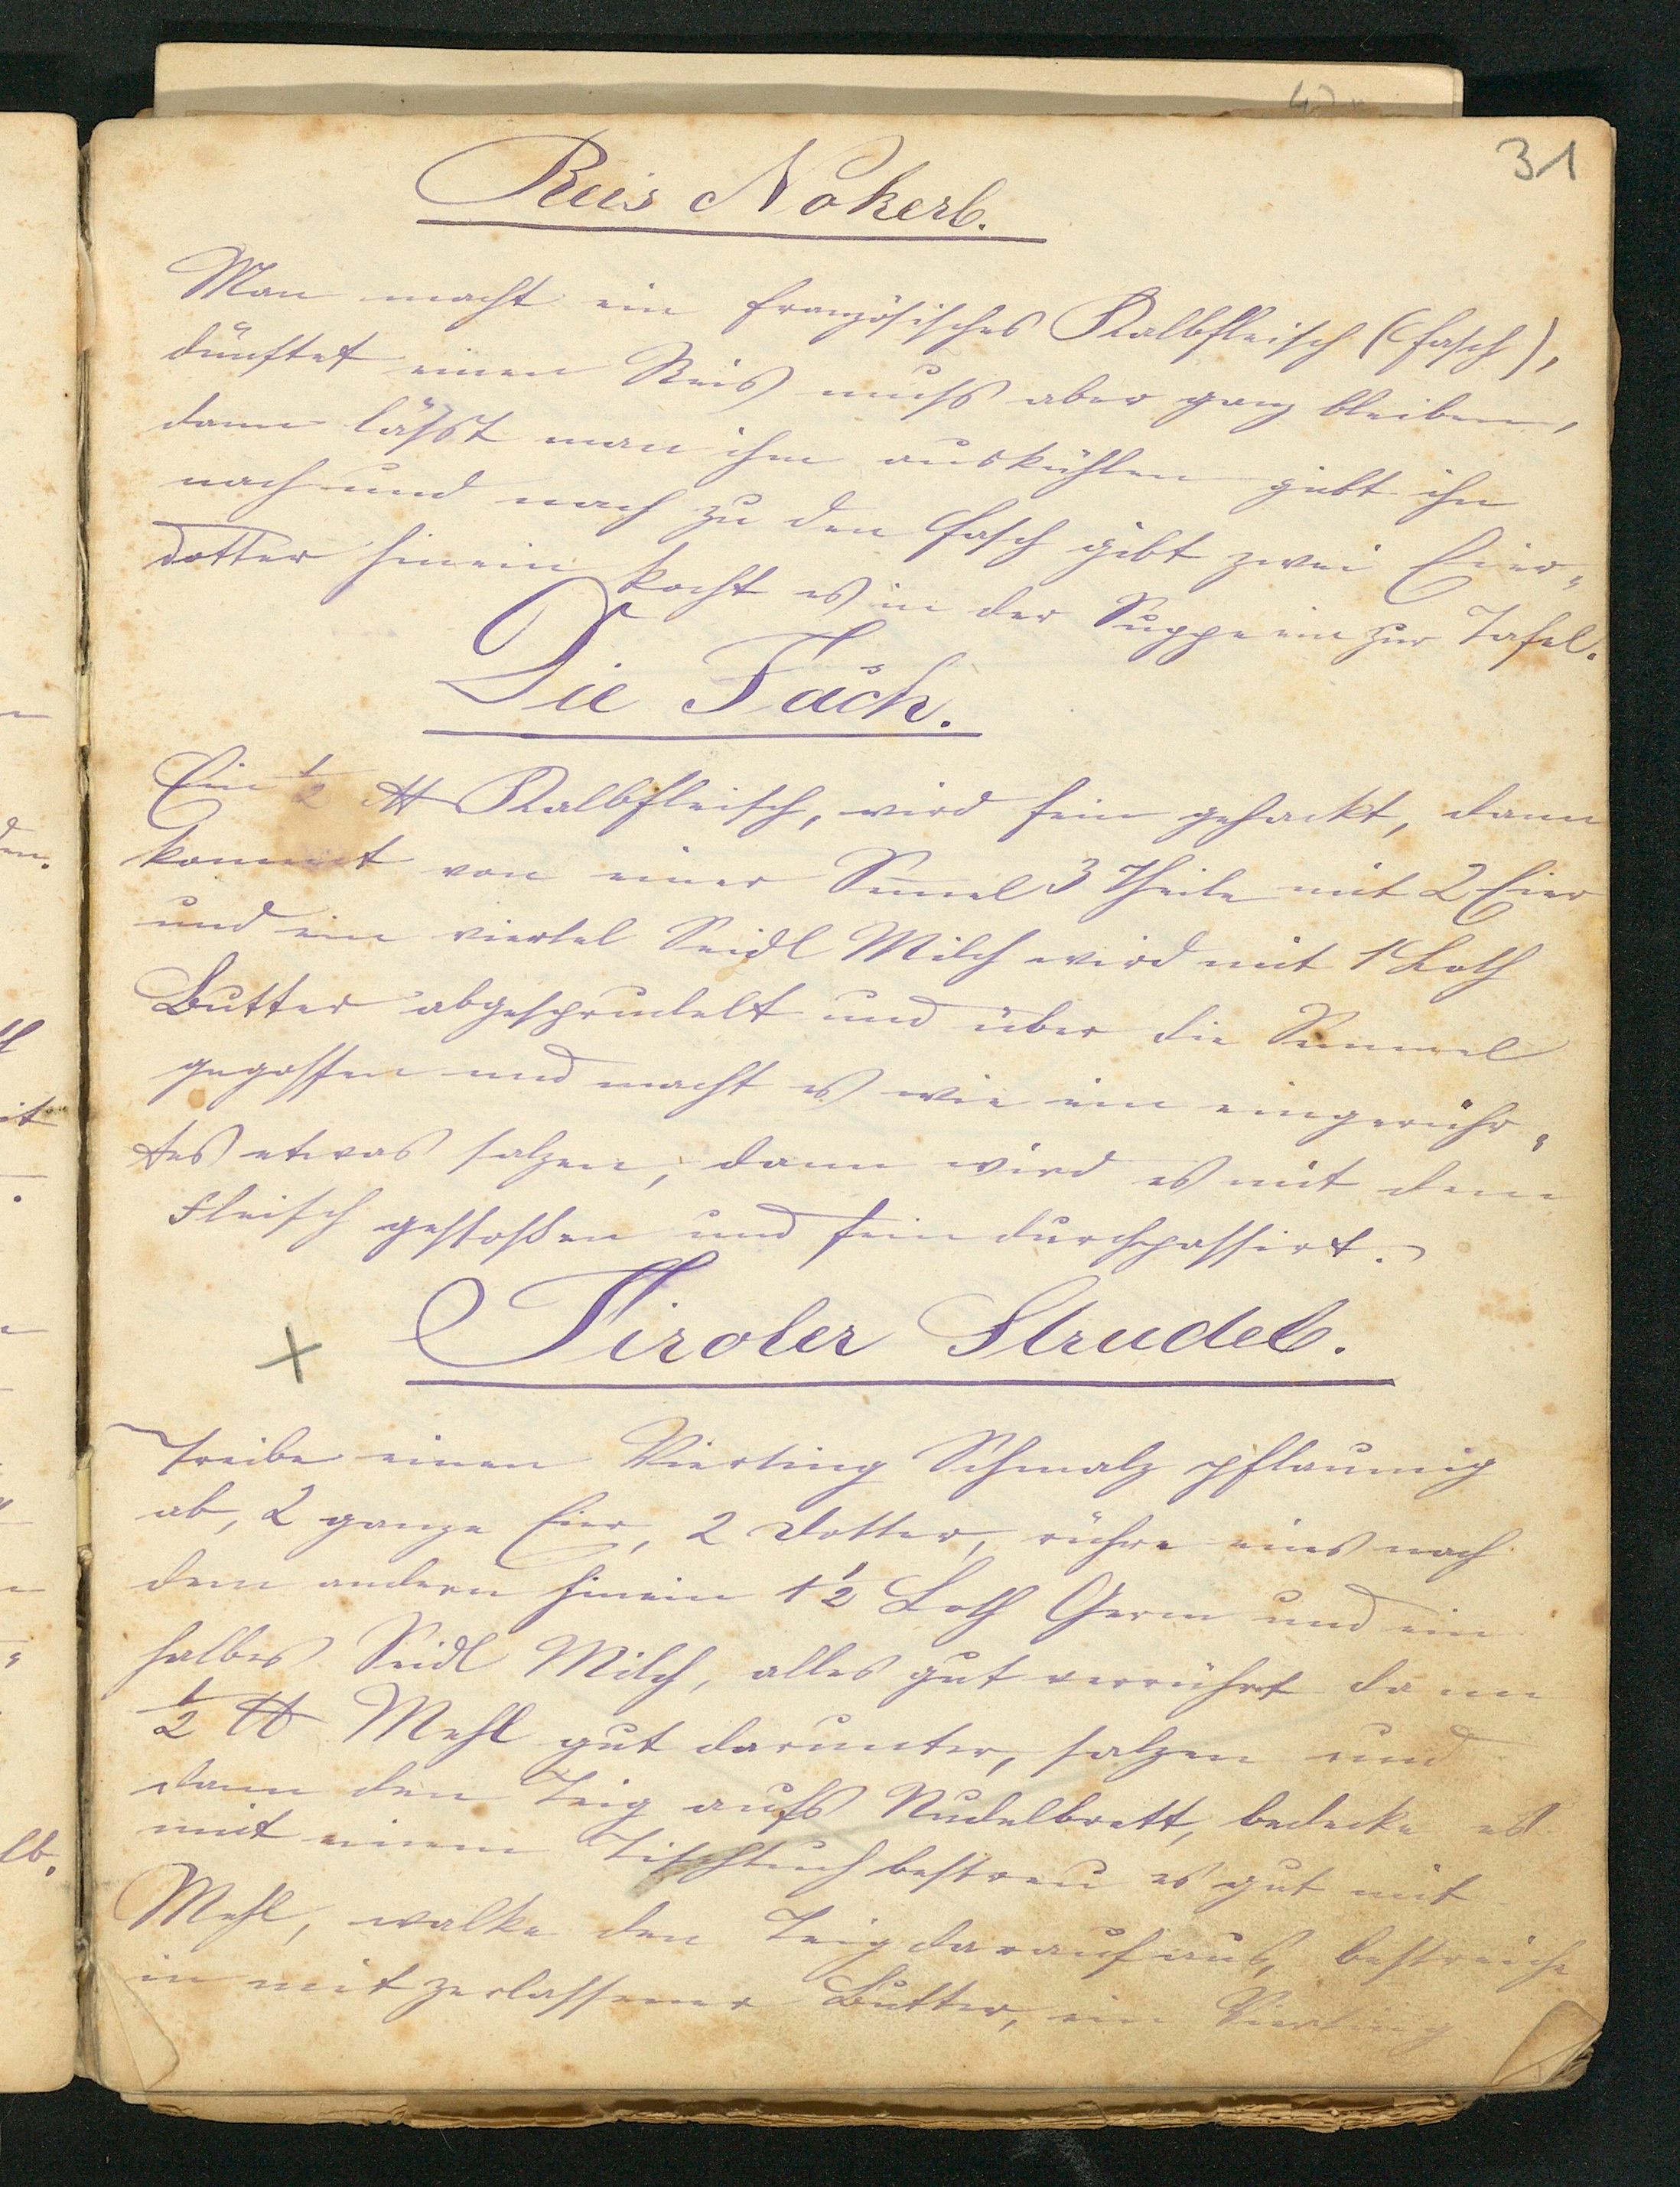 31
Reis Nokerl.
Man macht ein französisches Kalbfleisch (Fasch),
dünstet einen Reis muß aber ganz bleiben,
dann läßt man ihn auskühlen gibt ihn
nach und nach zu den Fasch gibt zwei Eier-
dotter hinein kocht es in der Suppe ein zur Tafel.
Die Fäch.
Ein ½ ℔ Kalbfleisch, wird fein gehackt, dann
kommt von einer Semel 3 Theile mit 2 Eier
und ein viertel Seidl Milch wird mit 1 Loth
Butter abgesprudelt und über die Semmel
gegossen und macht es wie ein eingerühr-
tes etwas salzen, dann wird es mit dem
Fleisch gestoßen und fein durchpassirt.
Tiroler Strudel.
Treibe einen Vierting Schmalz pflaumig
ab, 2 ganze Eier, 2 Dotter, rühre eins nach
dem andern hinein 1½ Loth Germ und ein
halbes Seidl Milch, alles gut verrührt dann
½ ℔ Mehl gut darunter, salzen und
dann den Teig aufs Nudelbrett, bedecke es
mit einem Tischtuch bestreu es gut mit
Mehl, walke den Teig darauf aus, bestreiche
in mit zerlassener Butter, ein Vierting